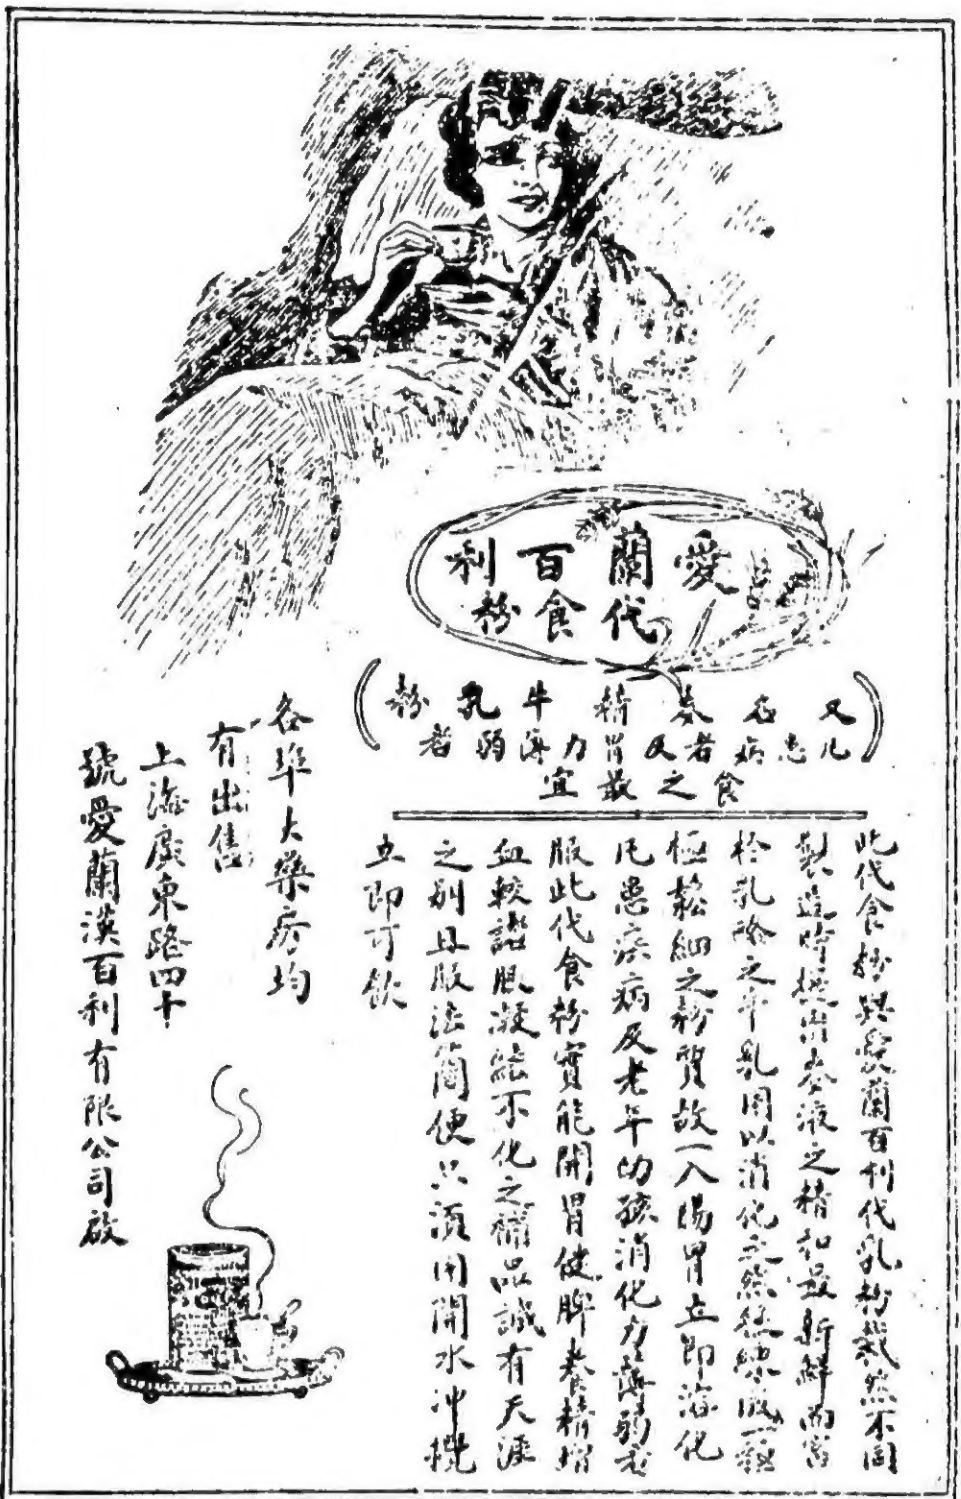 愛蘭百利
代食粉
又名麥精牛乳粉
凡患病者及胃力薄弱者
食之最宜
此代食粉與愛蘭百利代乳粉截然不同
製造時提出麥液之精和最新鮮而富
於乳酪之牛乳用以消化之然後煉成一種
極鬆細之粉質故一入腸胃立即溶化
凡患疾病及老年幼孩消化力薄弱者
服此代食粉實能開胃健脾養精增
血較諸服凝結不化之補品誠有天涯
之別且服法簡便只須用開水冲攪
立即可飲
各埠大藥房均
有出售
上海廣東路四十
號愛蘭漢百利有限公司啟